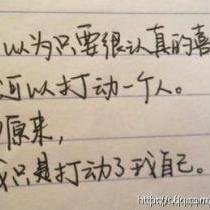 以为只要很认真的喜
可以打动一个人。
原来,
只是打动了我自己。